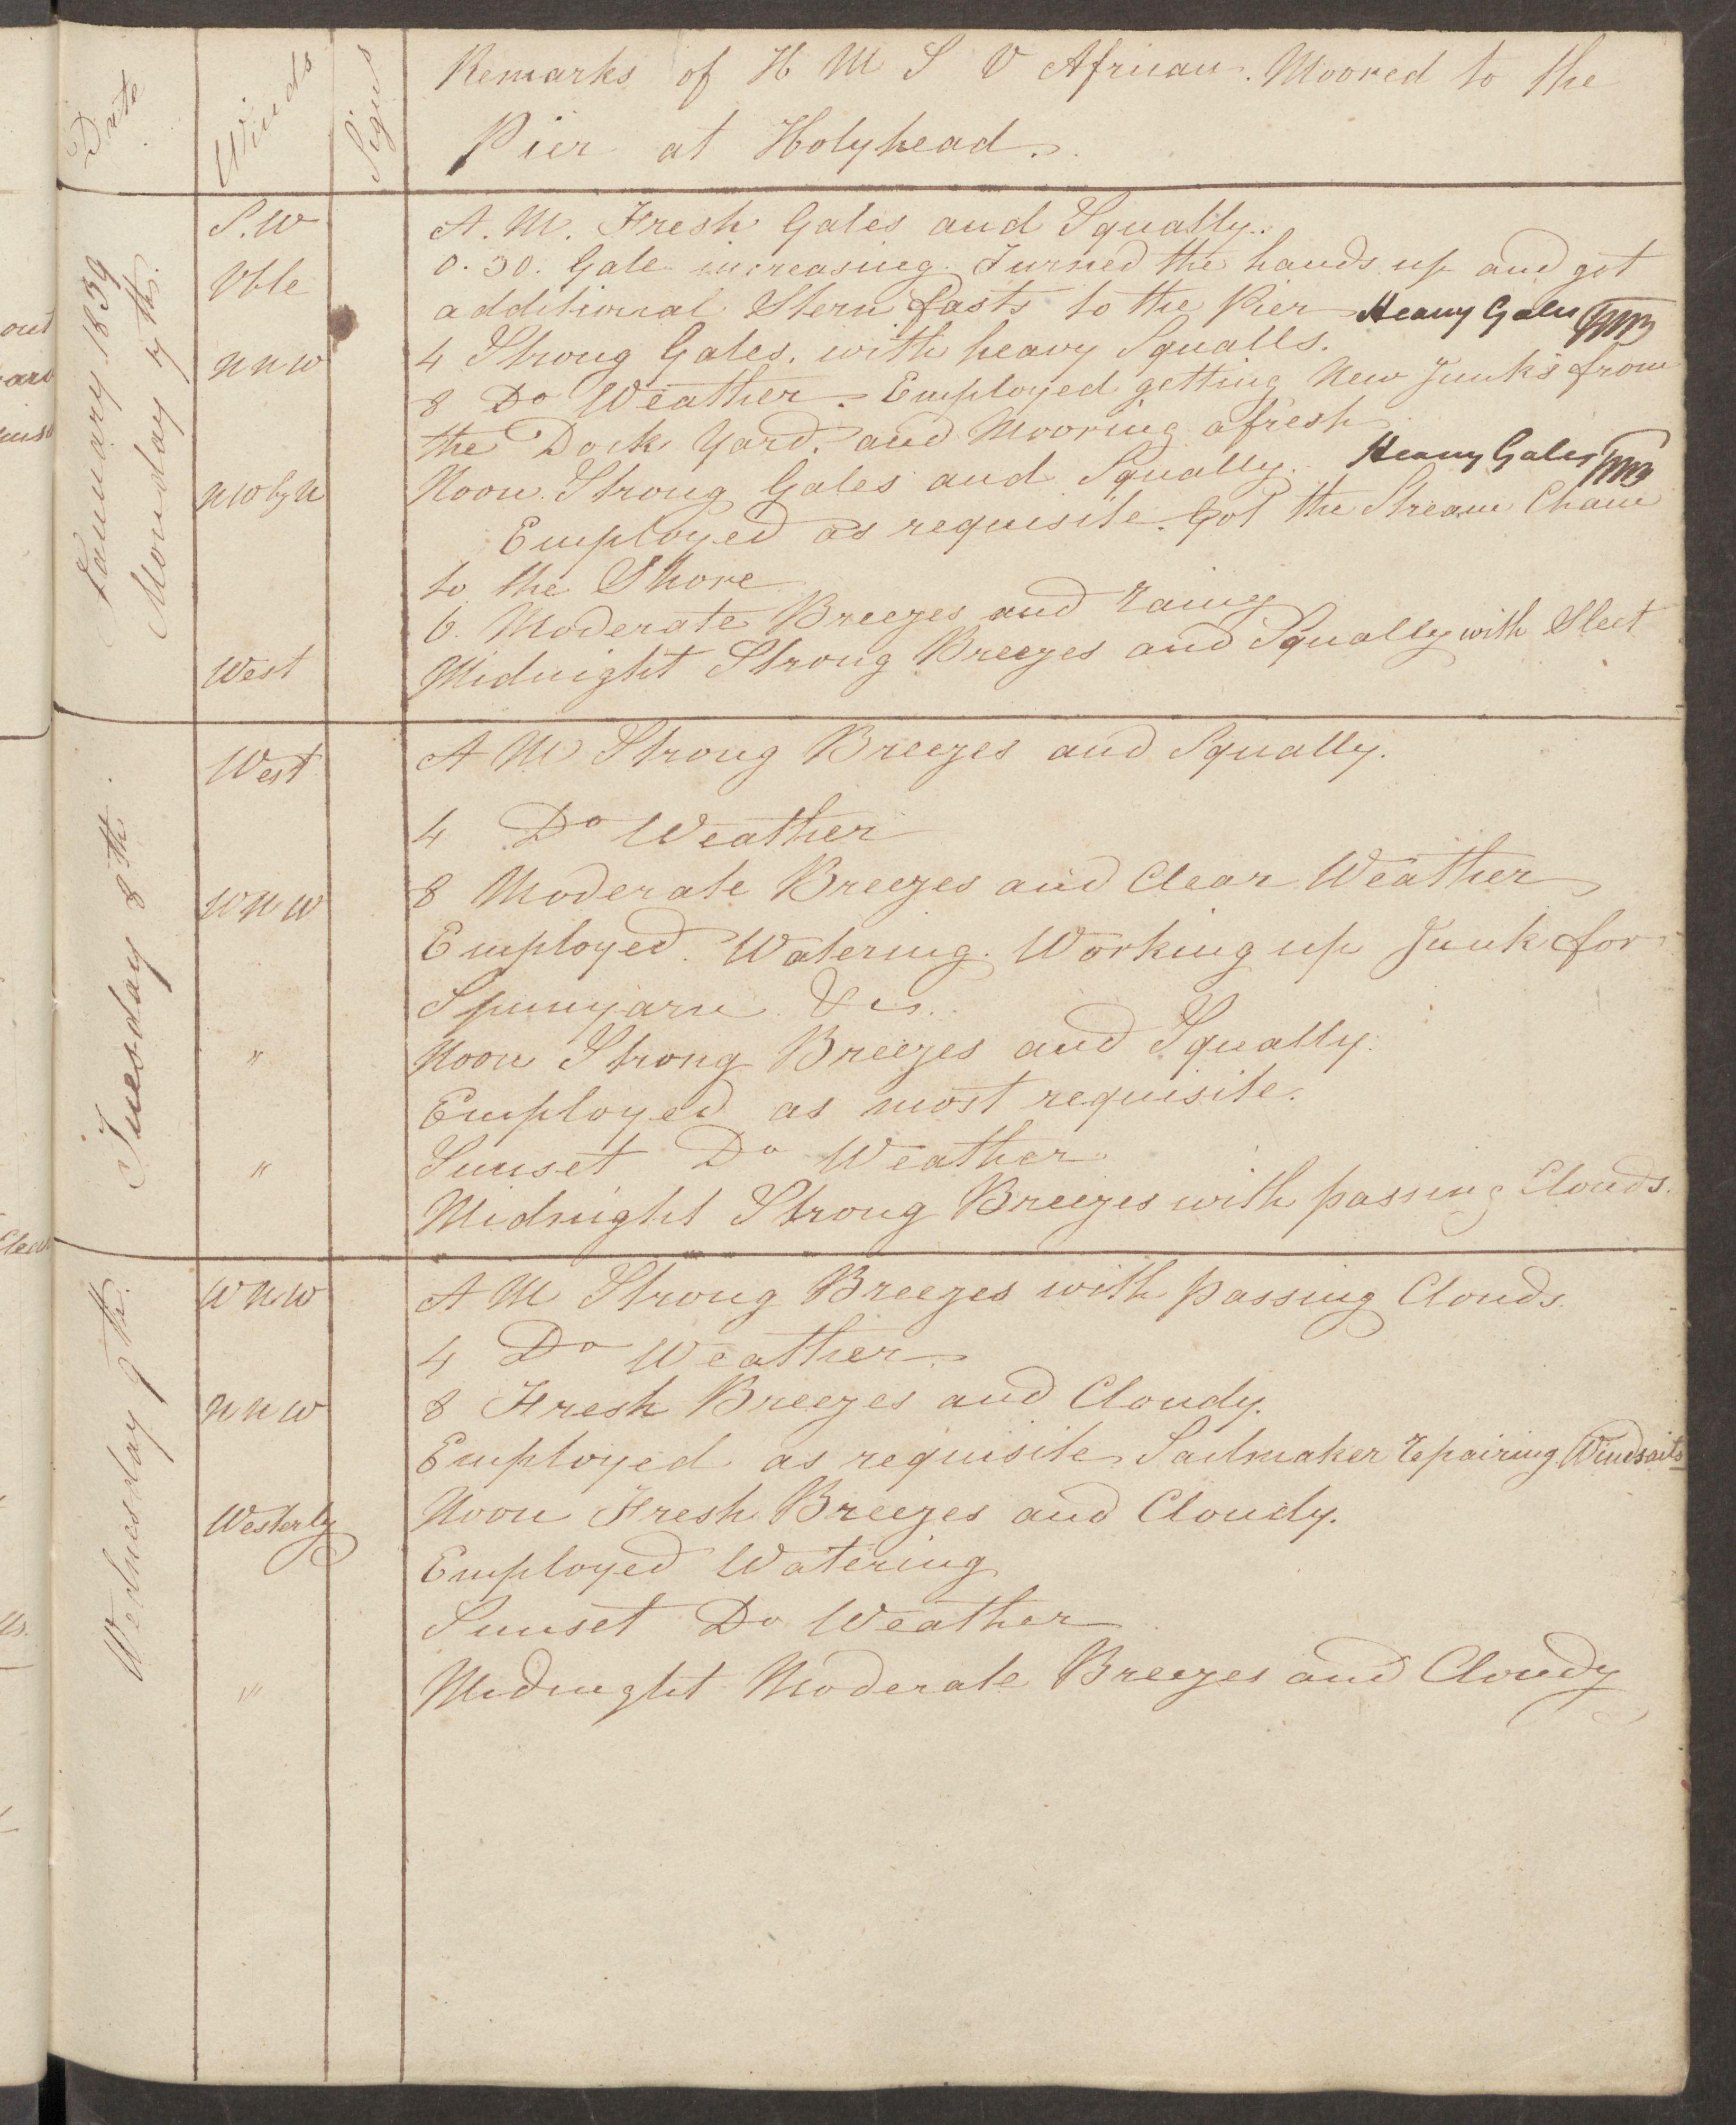 Date
Winds
Signs
Remarks of H M S V African. Moored to the
Pier at Holyhead.
January 1839
Monday 7th.
S.W
A.M. Fresh Gales and Squally.
0.30. Gale increasing. Turned the hands up and got
Vble
additional Stern fasts to the Pier Heavy Gales
4 Strong Gales. with heavy Squalls.
NNW
8 Do Weather. Employed getting New Junks from
the Dock Yard. and Mooring afresh
Noon. Strong Gales and Squally. Heavy Gales
NW by N
Employed as requisite. Got the Stream Chain
to the Shore
6. Moderate Breezes and rainy
West
Midnight Strong Breezes and Squally with Sleet
Tuesday 8th.
West
A M Strong Breezes and Squally.
4 Do Weather
WNW
8 Moderate Breezes and Clear Weather
Employed. Watering. Working up Junk for
Spunyarn &c.
"
Noon Strong Breezes and Squally.
Employed as most requisite.
"
Sunset Do Weather
Midnight Strong Breezes with passing Clouds.
Wednesday 9th.
WNW
A M Strong Breezes with passing Clouds.
4 Do Weather
NNW
8 Fresh Breezes and Cloudy.
Employed as requisite Sailmaker repairing Windsails
Westerly
Noon Fresh Breezes and Cloudy.
Employed Watering
Sunset Do Weather
"
Midnight Moderate Breezes and Cloudy